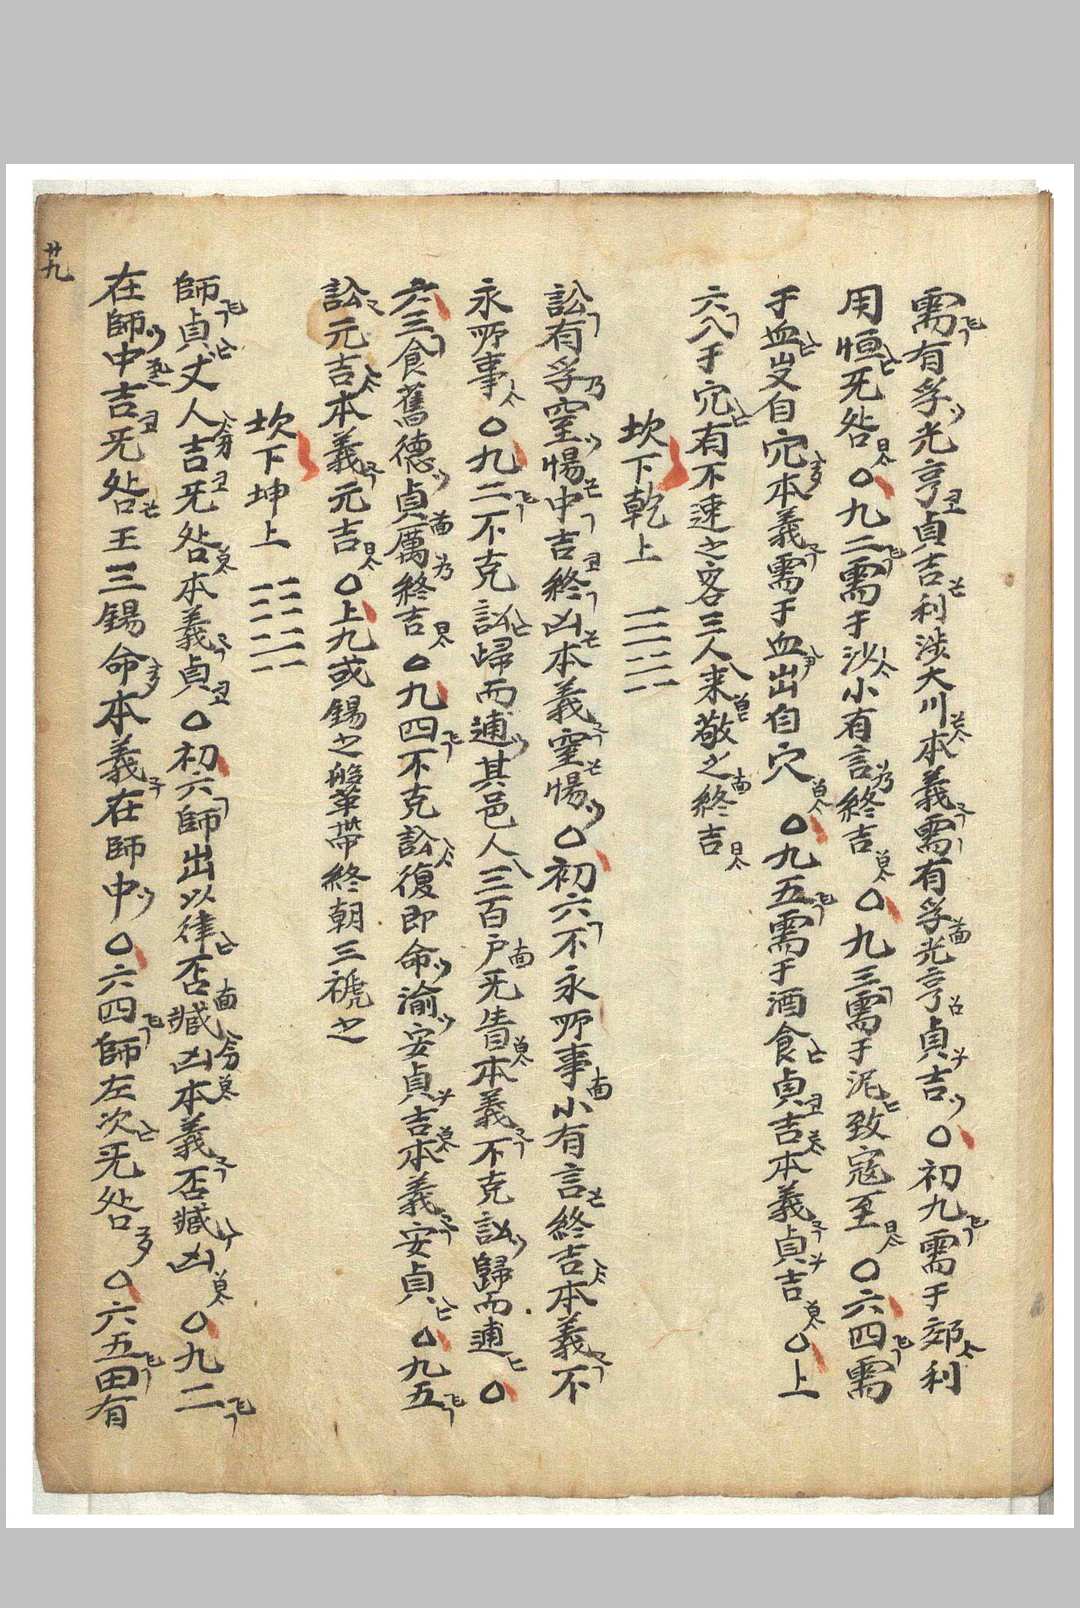 需有孚光亨貞吉利涉大川本義需有孚光亨貞吉〇初九需于郊利
用恒无咎〇九二需于沙小有言終吉〇九三需于泥致寇至〇六四需
于血出自穴本義需于血出自穴〇九五需于酒食貞吉本義貞吉〇上
六入于穴有不速之客三人来敬之終吉
坎下乾上
訟有孚窒惕中吉終凶本義窒惕〇初六不永所事小有言終吉本義不
永所事〇九二不克訟歸而逋其邑人三百户无眚本義不克訟歸而逋〇
六三食舊德貞厲終吉〇九四不克訟復即命渝安貞吉本義安貞〇九五
訟元吉本義元吉〇上九或錫之鞶帶終朝三褫之
坎下坤上
師貞丈人吉无咎本義貞〇初六師出以律否臧凶本義否臧凶〇九二
在師中吉无咎王三錫命本義在師中〇六四師左次无咎〇六五田有
廿九